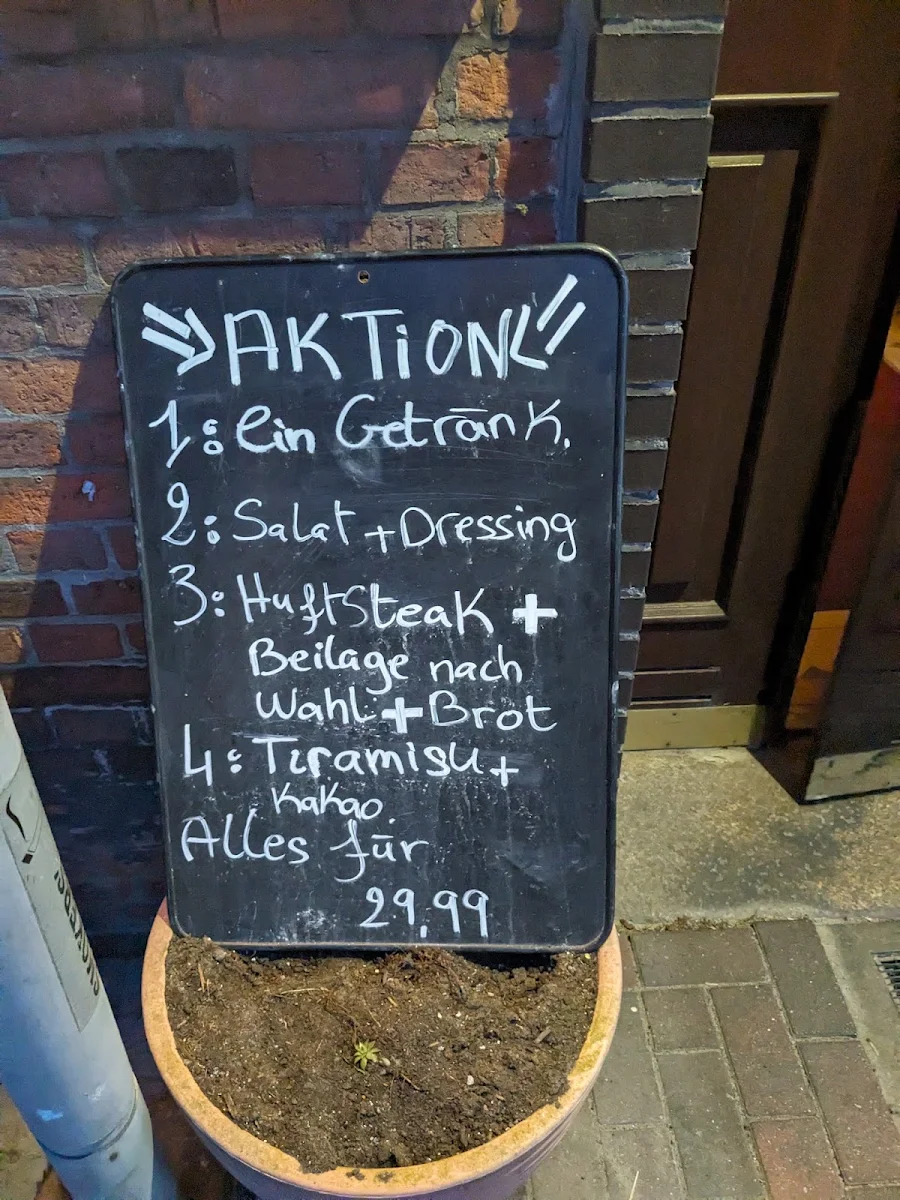 AKTiON
1: ein Getränk.
2: Salat + Dressing
3: HuftSteak +
Beilage nach
Wahl + Brot
4: Tiramisu +
Kakao.
Alles für
29.99